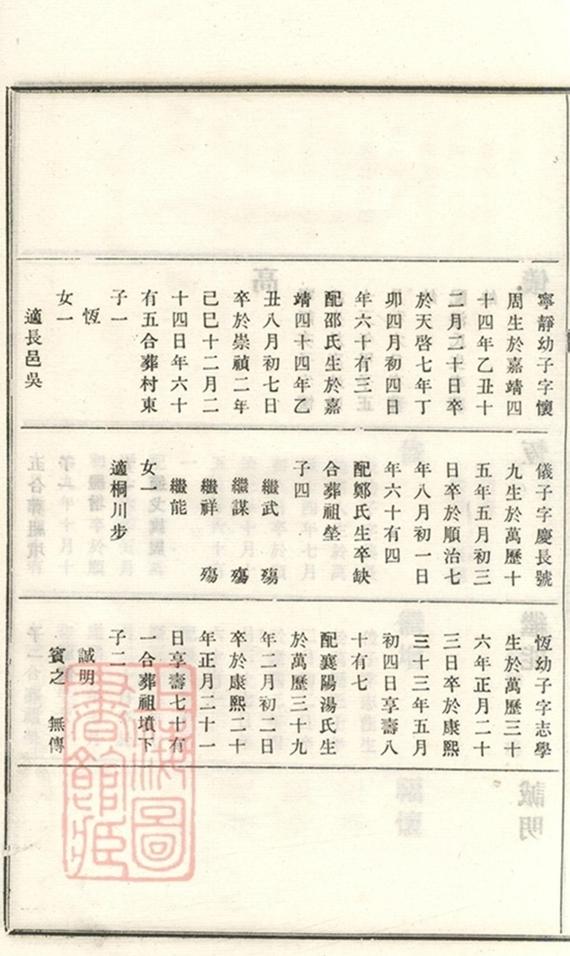 寧靜幼子字懷
周生於嘉靖四
十四年乙丑十
二月二十日卒
於天啓七年丁
卯四月初四日
年六十有三
配邵氏生於嘉
靖四十四年乙
丑八月初七日
卒於崇禎二年
己巳十二月二
十四日年六十
有五合葬村東
子一
恆
女一
適長邑吳
儀子字慶長號
九生於萬歷十
五年五月初三
日卒於順治七
年八月初一日
年六十有四
配鄭氏生卒缺
合葬祖塋
子四
繼武 殤
繼謀 殤
繼祥 殤
繼能
女一
適桐川步
恆幼子字志學
生於萬歷三十
六年正月二十
三日卒於康熙
三十三年五月
初四日享壽八
十有七
配襄陽湯氏生
於萬歷三十九
年二月初二日
卒於康熙二十
年正月二十一
日享壽七十有
一合葬祖墳下
子二
誠明
賓之 無傳
上海圖
書館藏